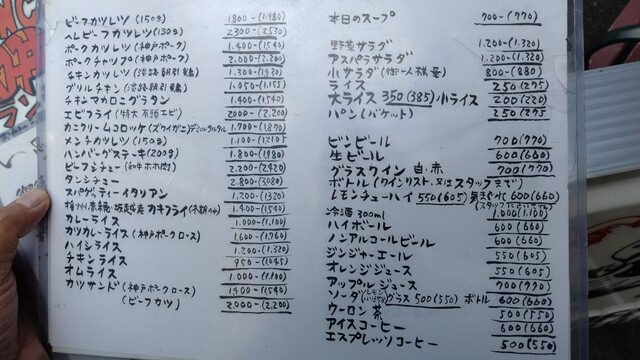 ビーフカツレツ (150g) 1800-(1.980)
ヘレビーフカツレツ(130g) 2300-(2530)
ポークカツレツ(神戸ポーク) 1.400-(1540)
ポークチャップ(神戸ポーク) 2.000-(2.200)
チキンカツレツ(淡路朝引き鶏) 1.300-(1430)
グリルチキン(淡路朝引き鶏) 1.050-(1155)
チキンマカロニグラタン 1.400-(1.540)
エビフライ(特大有頭エビ) 2000-(2.200)
カニクリームコロッケ(ズワイガニ) 1.700-(1.870)
メンチカツレツ(150g) 1.100-(1210)
ハンバーグステーキ(200g) 1.800-(1980)
ビーフシチュー(和牛ホホ肉) 2.200-(2420)
タンシチュー 2.800-(3080)
スパゲッティーイタリアン 1.200-(1320)
カキフライ(冬期のみ) 1.400-(1540)
カレーライス 1.000-(1.100)
カツカレーライス(神戸ポークロース) 1.600-(1.760)
ハイシライス 1.200-(1.320)
チキンライス 950-(1045)
オムライス 1.000-(1.100)
カツサンド(神戸ポークロース) 1400-(1.540)
(ビーフカツ) 2.000-(2.200)
本日のスープ 700-(770)
野菜サラダ 1.200-(1.320)
アスパラサラダ 1.200-(1.320)
小サラダ(御一人様分) 800-(880)
ライス 250(275)
大ライス 350(385) 小ライス 200(220)
パン(バケット) 250(275)
ビンビール 700(770)
生ビール 600(660)
グラスワイン 白・赤 700(770)
ボトル(ワインリスト、又はスタッフまで)
レモンチューハイ 550(605) 気まぐれ 600(660)
冷酒 300ml 1.000(1.100)
ハイボール 600(660)
ノンアルコールビール 600(660)
ジンジャーエール 550(605)
オレンジジュース 550(605)
アップルジュース 700(770)
ソーダ グラス 500(550) ボトル 600(660)
ウーロン茶 500(550)
アイスコーヒー 600(660)
エスプレッソコーヒー 500(550)